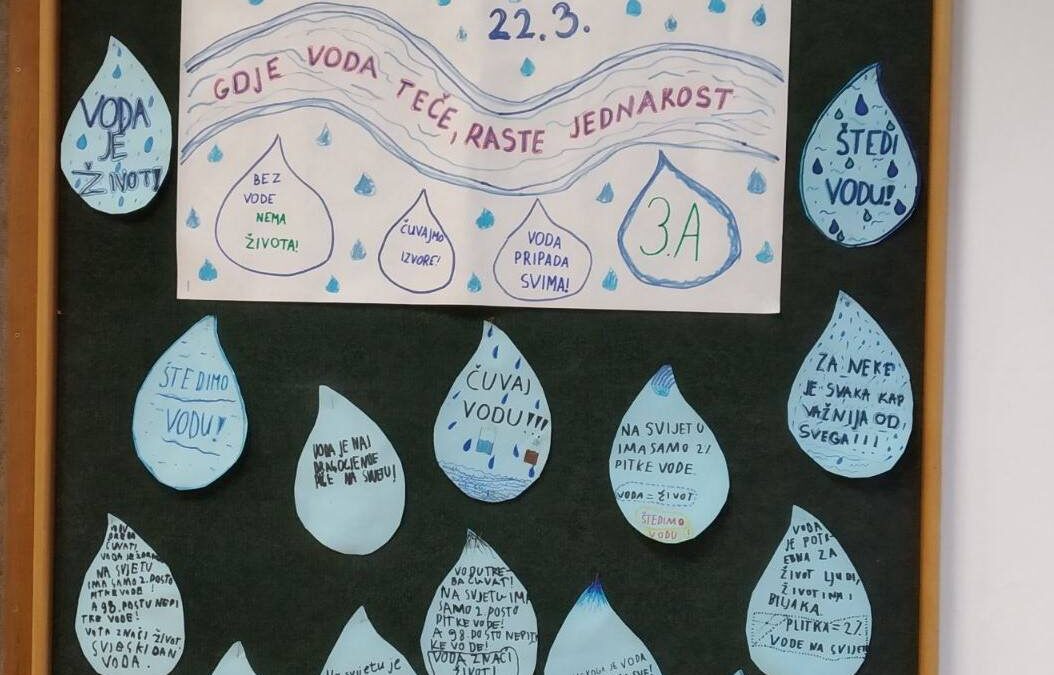 22.3.
GDJE VODA TEČE, RASTE JEDNAKOST
BEZ
VODE
NEMA
ŽIVOTA!
ČUVAJMO
IZVORE!
VODA
PRIPADA
SVIMA!
3.A
VODA
JE
ŽIVOT!
ŠTEDI
VODU!
ŠTEDIMO
VODU!
VODA JE NAJ
DRAGOCJENIJE
PIĆE NA SVIJETU!
ČUVAJ
VODU!!!
NA SVIJETU
IMA SAMO 2%
PITKE VODE.
VODA = ŽIVOT
ŠTEDIMO
VODU!
ZA NEKE
JE SVAKA KAP
VAŽNIJA OD
SVEGA!!!
ČUVATI
VODA JE
NA SVIJETU
IMA SAMO 2. POSTO
PITKE VODE!
A 98. POSTU NEPI
TKE VODE!
VOTA ZNAČI ŽIVOT
SVJESKI DAN
VODA.
VODU TRE-
BA ČUVATI!
NA SVIJETU IMA
SAMO 2. POSTO
PITKE VODE!
A 98. POSTO NEPIT
KE VODE!
VODA ZNAČI
ŽIVOT!
VODA
JE POTR-
EBNA ZA
ŽIVOT LJUDI,
ŽIVOTINJA I
BILJAKA.
PLITKA = 2%
VODE NA SVIJETU
Na svijetu je
JE VODA